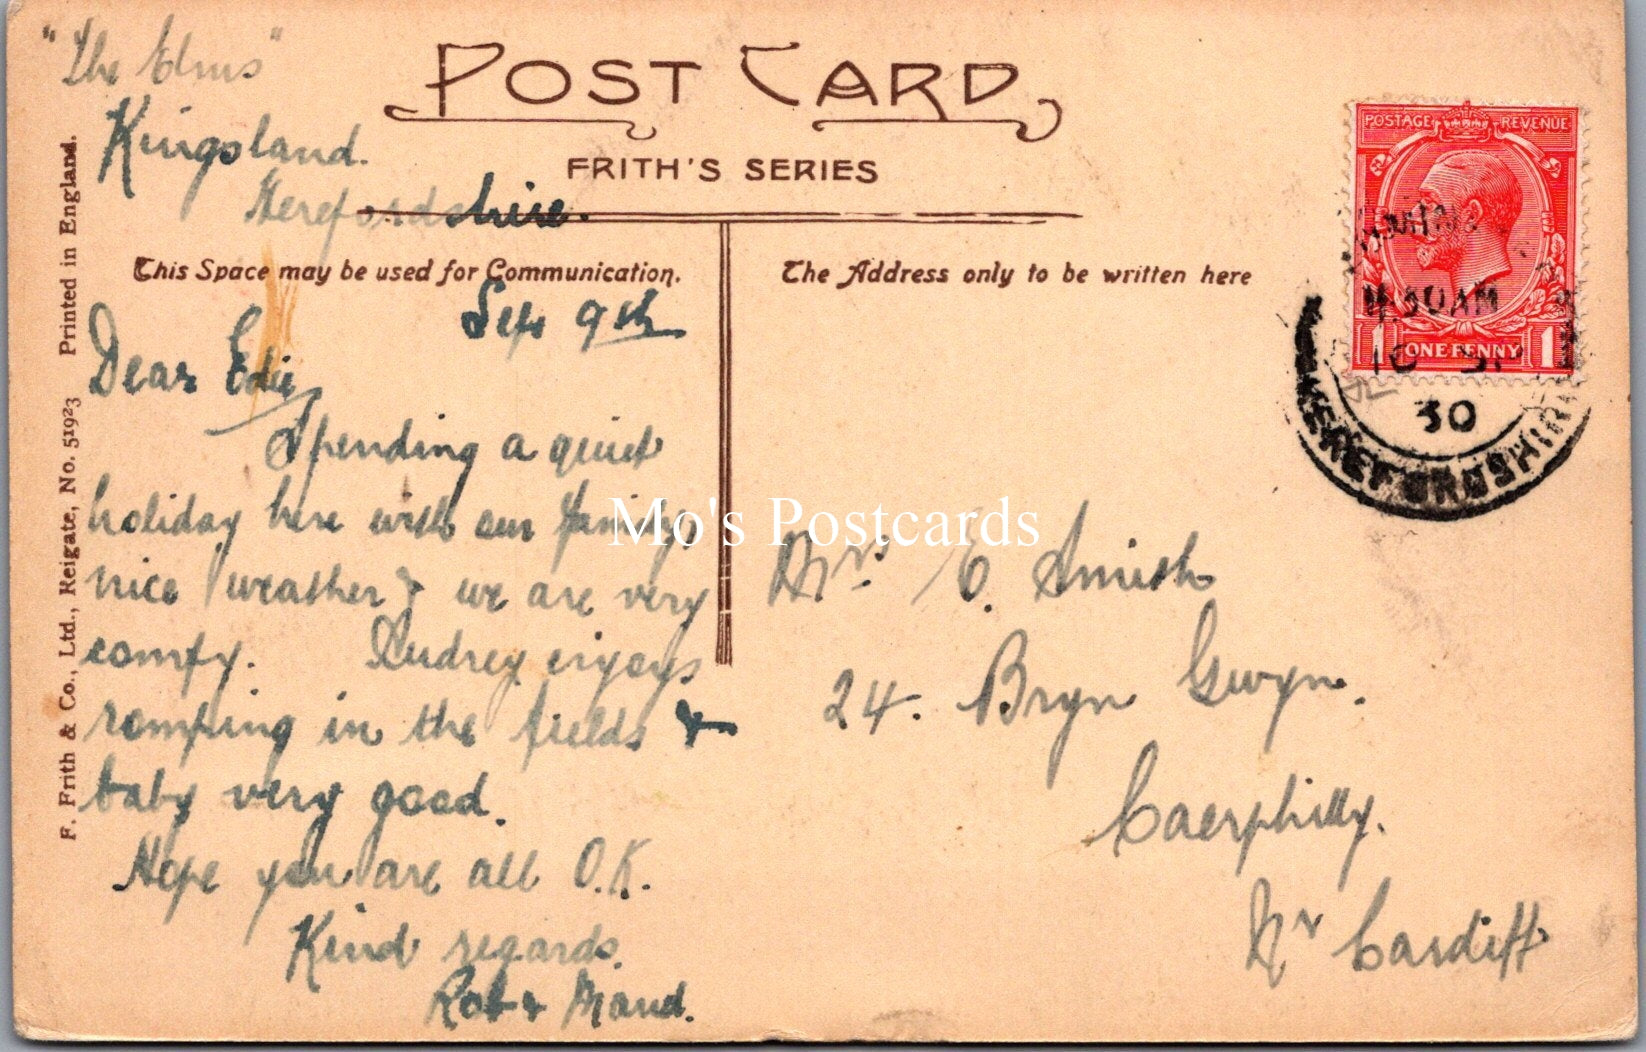 "The Elms"
Kingsland.
Herefordshire.
POST CARD
FRITH'S SERIES
This Space may be used for Communication.
The Address only to be written here
F. Frith & Co., Ltd., Reigate, No. 51923 Printed in England.
Sep 9th
Dear Edie
Spending a quiet
holiday here with our family
nice weather & we are very
comfy. Audrey enjoys
romping in the fields &
baby very good.
Hope you are all O.K.
Kind regards.
Rob & Maud.
Mrs. E. Smith
24. Bryn Gwyn.
Caerphilly.
Nr Cardiff
POSTAGE REVENUE
1 ONE PENNY 1
4.30AM
10 SP
30
HEREFORDSHIRE
Mo's Postcards